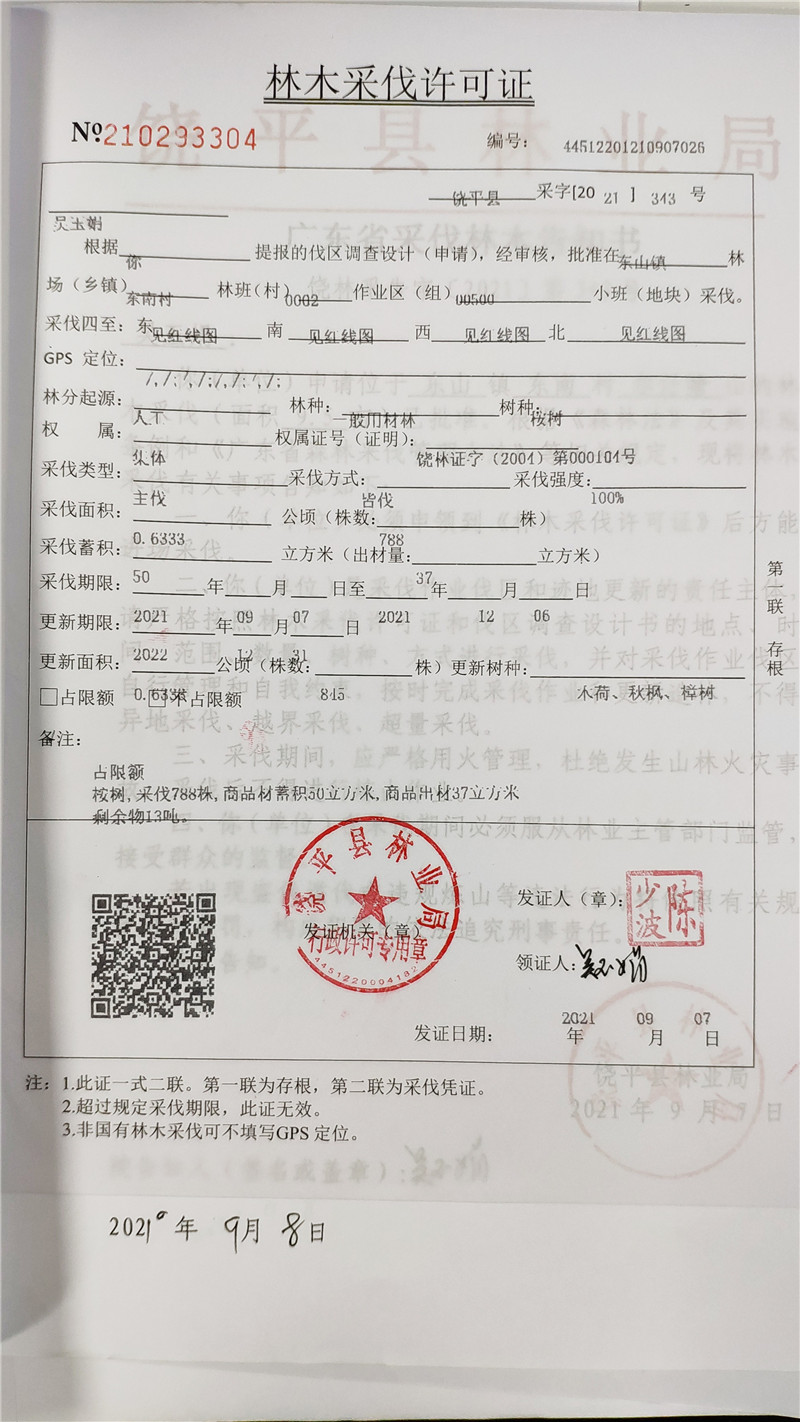 林木采伐许可证
№210293304 编号： 44512201210907026
饶平县 采字[20 21 ] 343 号
吴玉娟
根据 你 提报的伐区调查设计（申请），经审核，批准在 东山镇 林
场（乡镇） 东南村 林班（村） 0002 作业区（组） 00500 小班（地块）采伐。
采伐四至：东 见红线图 南 见红线图 西 见红线图 北 见红线图
GPS 定位：
/,/;/,/;/,/;/,/;
林分起源： 人工 林种： 一般用材林 树种： 桉树
权 属： 集体 权属证号（证明）： 饶林证字（2004）第000104号
采伐类型： 主伐 采伐方式： 皆伐 采伐强度： 100%
采伐面积： 0.6333 公顷（株数： 788 株）
采伐蓄积： 50 立方米（出材量： 37 立方米）
采伐期限： 2021 年 09 月 07 日至 2021 年 12 月 06 日
更新期限： 2022 年 12 月 31 日
更新面积： 0.6333 公顷（株数： 845 株）更新树种： 木荷、秋枫、樟树
□占限额 □不占限额
备注：
占限额
桉树,采伐788株,商品材蓄积50立方米,商品出材37立方米
剩余物13吨。
第一联 存根
饶平县林业局
行政许可专用章
4451220004182
发证机关（章）
发证人（章）： 陈少波
领证人：吴玉娟
发证日期： 2021 年 09 月 07 日
注：1.此证一式二联。第一联为存根，第二联为采伐凭证。
2.超过规定采伐期限，此证无效。
3.非国有林木采伐可不填写GPS 定位。
饶平县林业局
2021 年 9 月 7 日
2021年 9月 8日